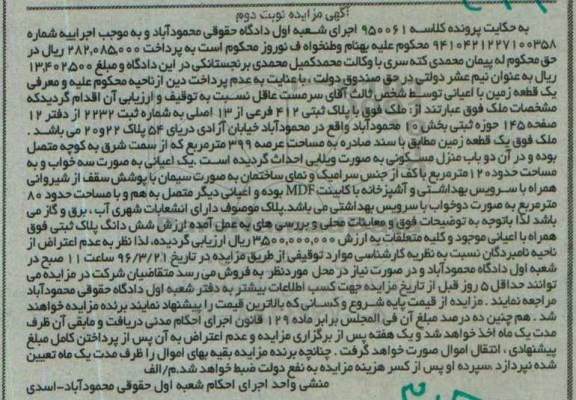 آگهی مزایده نوبت دوم
به حکایت پرونده کلاسه ۹۵۰۰۶۱ اجرای شعبه اول دادگاه حقوقی محمودآباد و به موجب اجراییه شماره
۹۴۱۰۴۲۱۲۲۷۱۰۰۳۵۸ محکوم علیه بهنام وطنخواه ف نوروز محکوم است به پرداخت ۲۸۲,۰۸۵,۰۰۰ ریال در
حق محکوم له پیمان محمدی کته سری با وکالت محمدکمیل محمدی برنجستانکی در این دادگاه و مبلغ ۱۳,۴۰۲۵۰۰
ریال به عنوان نیم عشر دولتی در حق صندوق دولت ، با عنایت به عدم پرداخت دین ازناحیه محکوم علیه و معرفی
یک قطعه زمین با اعیانی توسط شخص ثالث آقای سرمست عاقل نسبت به توقیف و ارزیابی آن اقدام گردیدکه
مشخصات ملک فوق عبارتند از: ملک فوق با پلاک ثبتی ۴۱۲ فرعی از ۱۳ اصلی به شماره ثبت ۲۲۳۲ از دفتر ۱۲
صفحه ۱۴۵ حوزه ثبتی بخش ۱۰ محمودآباد واقع در محمودآباد خیابان آزادی دریای ۵۴ پلاک ۲۲و۲۰ می باشد .
ملک فوق یک قطعه زمین مطابق با سند صادره به مساحت عرصه ۳۹۹ مترمربع که از سمت شرق به کوچه متصل
بوده و در آن دو باب منزل مسکونی به صورت ویلایی احداث گردیده است .یک اعیانی به صورت سه خواب و به
مساحت حدود۱۲۰مترمربع با کف از جنس سرامیک و نمای ساختمان به صورت سیمان با پوشش سقف از شیروانی
همراه با سرویس بهداشتی و آشپزخانه با کابینت MDF بوده و اعیانی دیگر متصل به هم و با مساحت حدود ۸۰
مترمربع به صورت دوخواب با سرویس بهداشتی می باشد.پلاک موصوف دارای انشعابات شهری آب ، برق و گاز می
باشد لذا باتوجه به توضیحات فوق و معاینات محلی و بررسی های به عمل آمده ارزش شش دانگ پلاک ثبتی فوق
همراه با اعیانی موجود و کلیه متعلقات به ارزش ۳۵۰۰,۰۰۰,۰۰۰ ریال ارزیابی گردیده، لذا نظر به عدم اعتراض از
ناحیه نامبردگان نسبت به نظریه کارشناسی موارد توقیفی از طریق مزایده در تاریخ ۹۶/۳/۲۱ ساعت ۱۱ صبح در
شعبه اول دادگاه محمودآباد و در صورت نیاز در محل موردنظر به فروش می رسد متقاضیان شرکت در مزایده می
توانند حداقل ۵ روز قبل از تاریخ مزایده جهت کسب اطلاعات بیشتر به دفتر شعبه اول دادگاه حقوقی محمودآباد
مراجعه نمایند . مزایده از قیمت پایه شروع و کسانی که بالاترین قیمت را پیشنهاد نمایند برنده مزایده خواهند
شد . هم چنین ده درصد مبلغ آن فی المجلس برابر ماده ۱۲۹ قانون اجرای احکام مدنی دریافت و مابقی آن ظرف
مدت یک ماه اخذ خواهد شد و یک هفته پس از برگزاری مزایده و عدم اعتراض به آن پس از پرداختن کامل مبلغ
پیشنهادی ، انتقال اموال صورت خواهد گرفت . چنانچه برنده مزایده بقیه بهای اموال را ظرف مدت یک ماه تعیین
شده نپردازد ،سپرده او پس از کسر هزینه مزایده به نفع دولت ضبط خواهد شد.م/الف
منشی واحد اجرای احکام شعبه اول حقوقی محمودآباد-اسدی